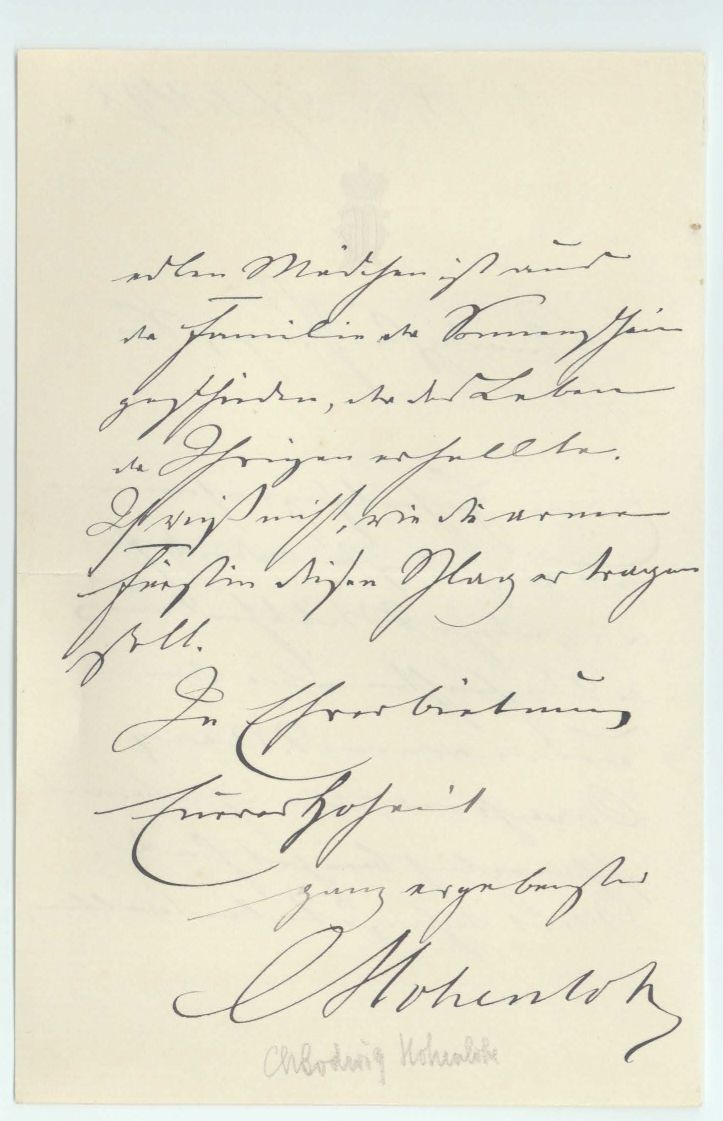 edlen Mädchen ist aus
der Familie der Sonnenschein
geschieden, der das Leben
der Ihrigen erhellte.
Ich weiß nicht, wie die arme
Fürstin diesen Schlag ertragen
soll.
In Ehrerbietung
Euerer Hoheit
ganz ergebenster
CHohenlohe
Chlodwig Hohenlohe